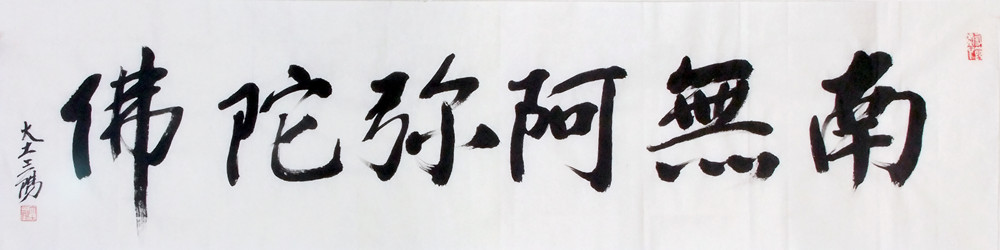 南無阿弥陀佛
大士三陽